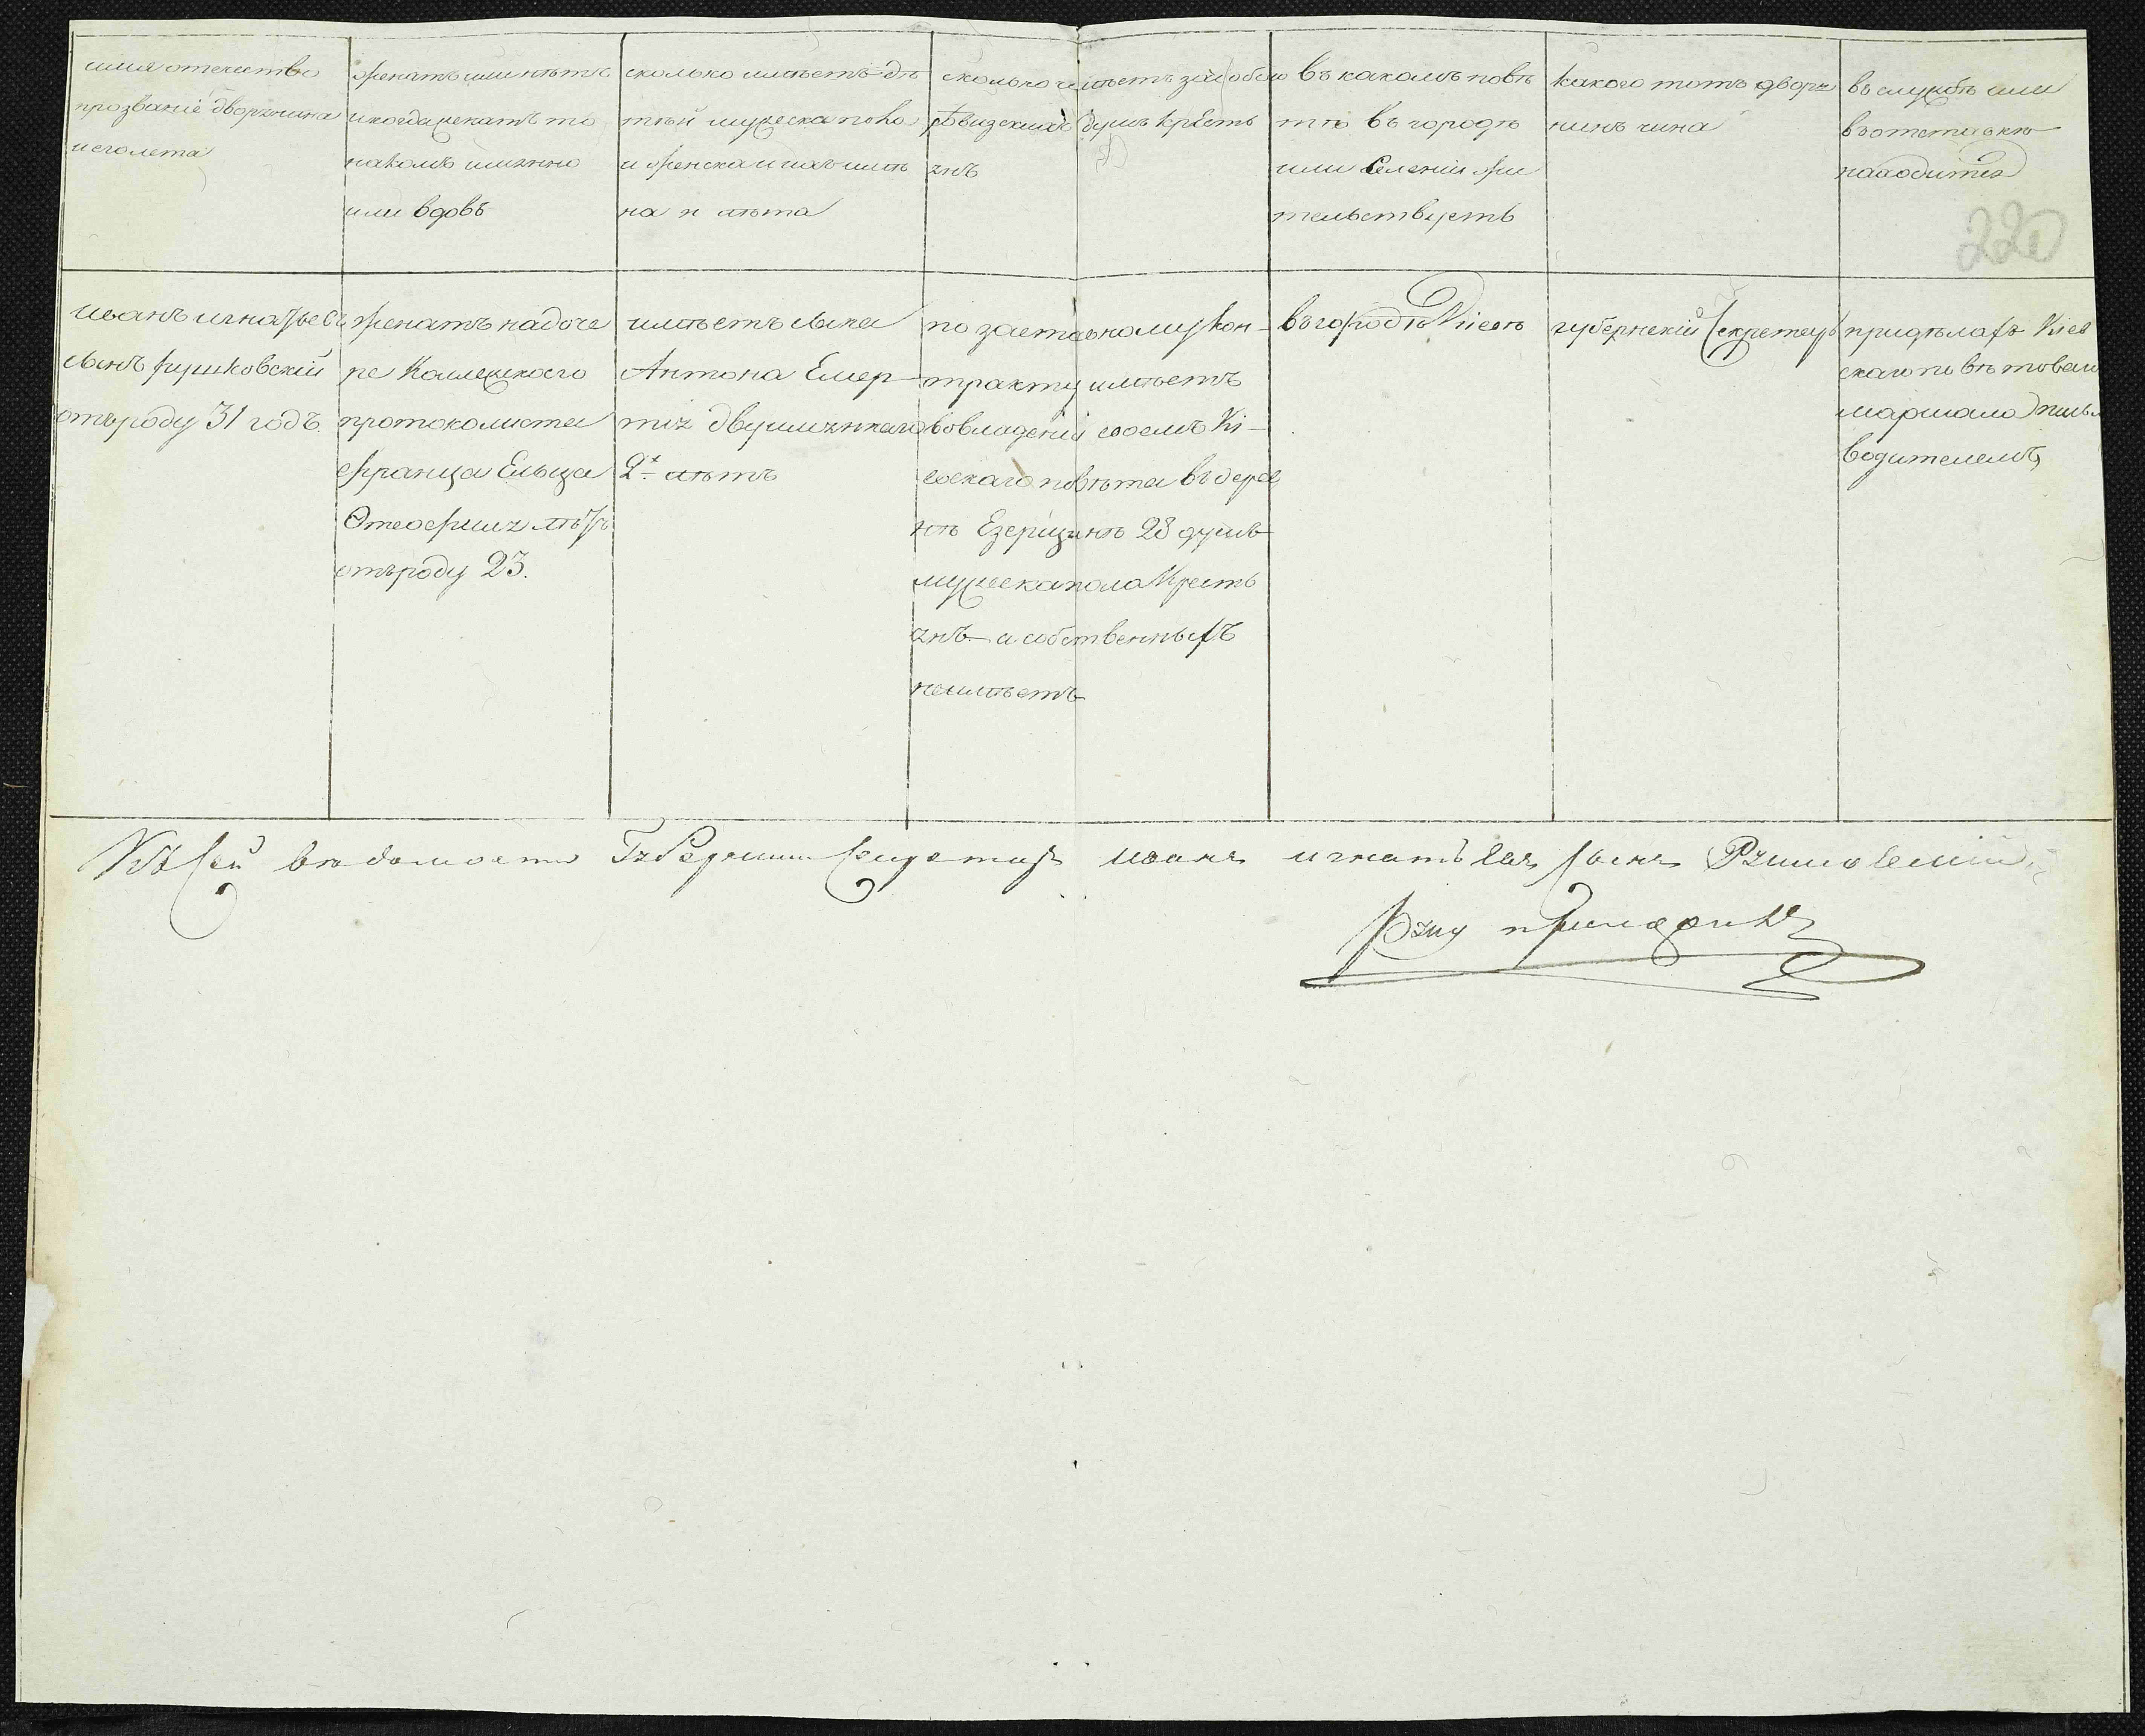 имя отечество
прозваніе дворянина
и его лета
женатъ или нѣтъ
и когда женатъ то
на комъ имянно
или вдовъ
сколько имѣетъ дѣ
тѣй мужеска пола
и женска и ихъ имѣ
на и лѣта
сколько имѣетъ за собою
ревизскихъ душъ крестья
янъ
въ какомъ повѣ
тѣ въ городѣ
или селеніи жи
тельствуетъ
какого тотъ дворя
нинъ чина
въ службѣ или
въ отставкѣ
находится
220
иванъ игнатьевъ
сынъ ржишковскій
отъ роду 31 годъ.
женатъ на доче
ре Коллежского
протоколиста
Франца Ельца
Ѳтеофиліи лѣтъ
отъ роду 23.
имѣетъ сына
Антона
2х лѣтъ
по заставному кон-
тракту имѣетъ
во владеніи своемъ Кі-
евскаго повѣта въ дерев
нѣ Езерщинѣ 28 душъ
мужеска пола Кресть
янъ а собственныхъ
неимѣетъ
въ городѣ Кіевѣ
губернскій секретарь
при дѣлахъ Кіев
скаго повѣтоваго
маршала письмо
водителемъ
Къ сей вѣдомости Губернскій секретарь иванъ игнатьевъ сынъ
руку приложилъ